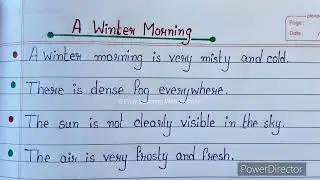 A Winter Morning
Page:
Date:
A winter morning is very misty and cold.
There is dense fog everywhere.
The sun is not clearly visible in the sky.
The air is very frosty and fresh.
PowerDirector